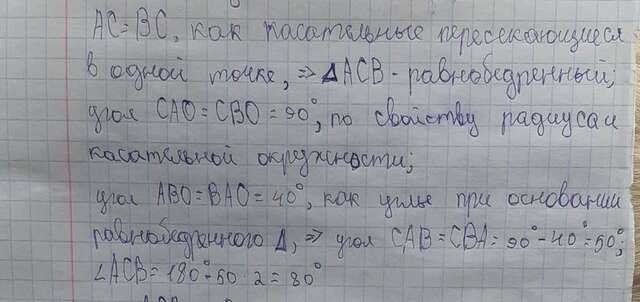 AC=BC, как касательные пересекающиеся
в одной точке, => ΔACB - равнобедренный;
угол CAO=CBO=90°, по свойству радиуса и
касательной окружности;
угол ABO=BAO=40°, как углы при основании
равнобедренного Δ, => угол CAB=CBA=90°-40°=50°;
∠ACB=180°-50·2=80°